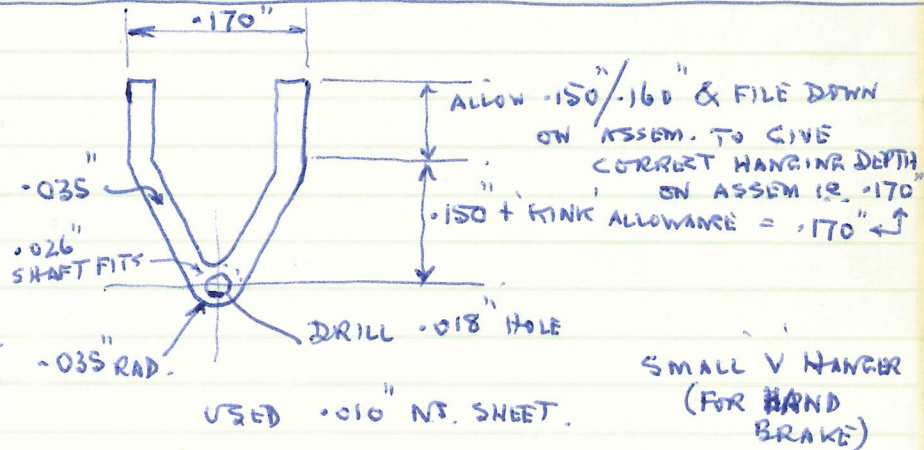 .170"
ALLOW .150"/.160" & FILE DOWN
ON ASSEM. TO GIVE
CORRECT HANGING DEPTH
ON ASSEM IE .170"
.150 + 'KINK' ALLOWANCE = .170"
.035"
.026"
SHAFT FITS
DRILL .018" HOLE
.035" RAD.
USED .010" NS. SHEET.
SMALL 'V' HANGER
(FOR HAND
BRAKE)